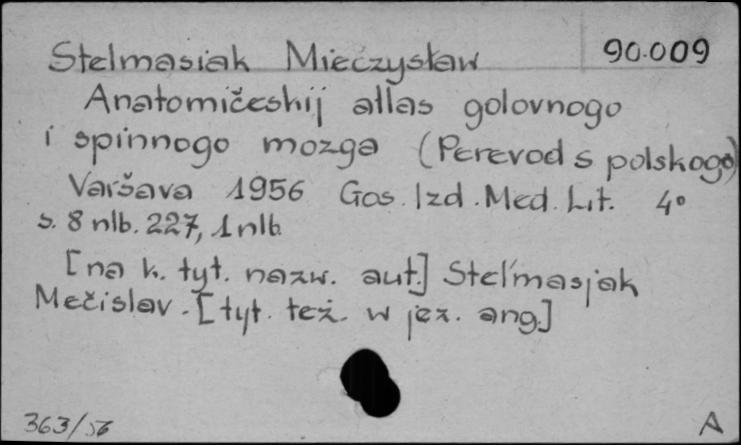 Stelmasiak Mieczysław 90.009
Anatomičeskij atlas golovnogo
i spinnogo mozga (Perevod s polskogo)
Varšava 1956 Gos. Izd. Med. Lit. 4°
s. 8 nlb. 227, 1 nlb
[na k. tyt. nazw. aut.] Stel'masjak
Mečislav. [tyt. też. w jęz. ang.]
363/56
A